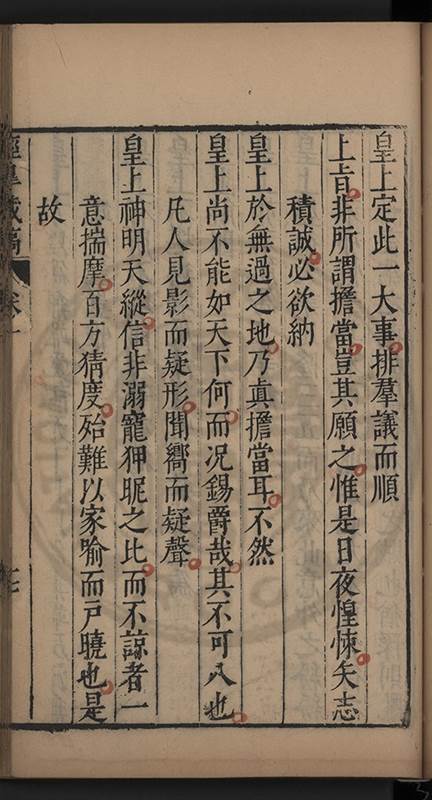 皇上定此一大事排羣議而順
上旨非所謂擔當豈其願之惟是日夜惶悚矢志
積誠必欲納
皇上於無過之地乃眞擔當耳不然
皇上尚不能如天下何而况錫爵哉其不可八也
凡人見影而疑形聞嚮而疑聲
皇上神明天縱信非溺寵狎昵之比而不諒者一
意揣摩百方猜度殆難以家喻而戸曉也是
故
卷一